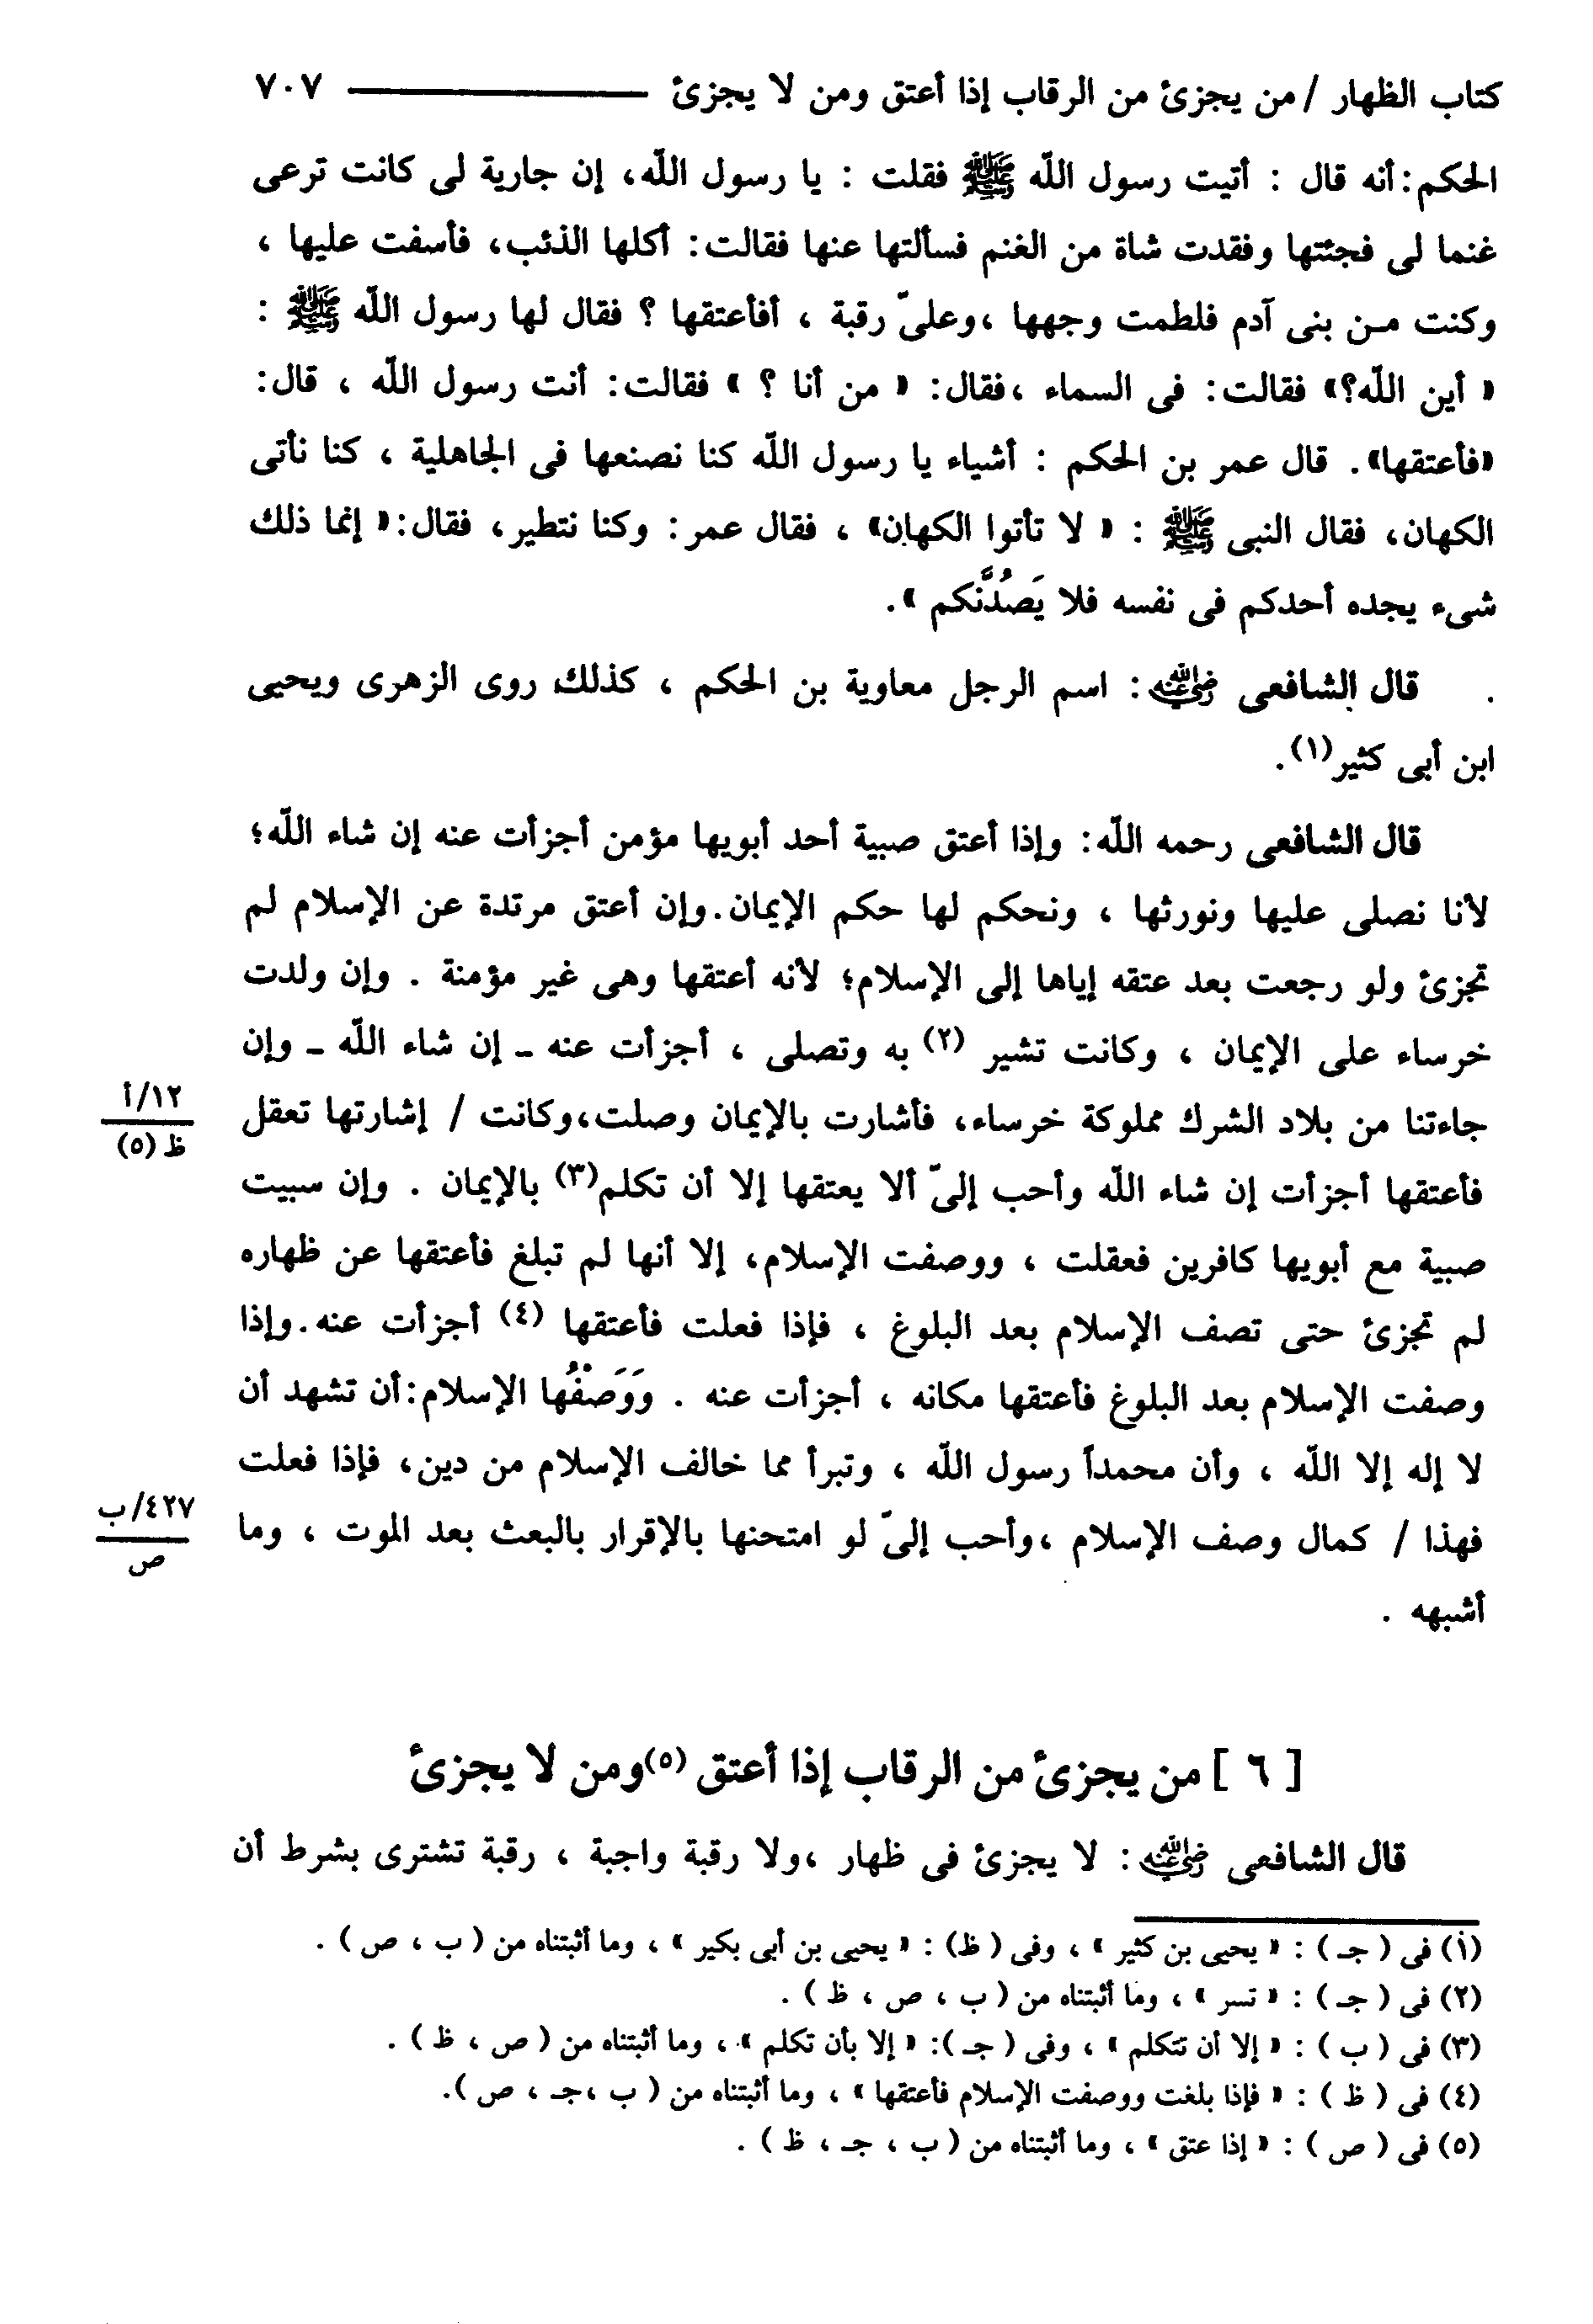 كتاب الظهار / من يجزئ من الرقاب إذا أعتق ومن لا يجزئ ٧٠٧
الحكم: أنه قال : أتيت رسول اللّه ﷺ فقلت : يا رسول اللّه، إن جارية لى كانت ترعى
غنما لى فجئتها وفقدت شاة من الغنم فسألتها عنها فقالت: أكلها الذئب، فأسفت عليها ،
وكنت مـن بنى آدم فلطمت وجهها ،وعلىّ رقبة ، أفأعتقها ؟ فقال لها رسول اللّه ﷺ :
« أين اللّه؟» فقالت: فى السماء ،فقال: « من أنا ؟ » فقالت: أنت رسول اللّه ، قال:
«فأعتقها». قال عمر بن الحكم : أشياء يا رسول اللّه كنا نصنعها فى الجاهلية ، كنا نأتى
الكهان، فقال النبى ﷺ : « لا تأتوا الكهان» ، فقال عمر: وكنا نتطير، فقال:« إنما ذلك
شىء يجده أحدكم فى نفسه فلا يَصُدَّنكم ».
قال الشافعى رضي الله عنه : اسم الرجل معاوية بن الحكم ، كذلك روى الزهرى ويحيى
ابن أبى كثير(١).
قال الشافعى رحمه اللّه: وإذا أعتق صبية أحد أبويها مؤمن أجزأت عنه إن شاء اللّه؛
لأنا نصلى عليها ونورثها ، ونحكم لها حكم الإيمان.وإن أعتق مرتدة عن الإسلام لم
تجزئ ولو رجعت بعد عتقه إياها إلى الإسلام؛ لأنه أعتقها وهى غير مؤمنة . وإن ولدت
خرساء على الإيمان ، وكانت تشير (٢) به وتصلى ، أجزأت عنه ـ إن شاء اللّه ـ وإن
جاءتنا من بلاد الشرك مملوكة خرساء، فأشارت بالإيمان وصلت،وكانت / إشارتها تعقل
١٢/أ
ظ (٥)
فأعتقها أجزأت إن شاء اللّه وأحب إلىّ ألا يعتقها إلا أن تكلم(٣) بالإيمان . وإن سبيت
صبية مع أبويها كافرين فعقلت ، ووصفت الإسلام، إلا أنها لم تبلغ فأعتقها عن ظهاره
لم تجزئ حتى تصف الإسلام بعد البلوغ ، فإذا فعلت فأعتقها (٤) أجزأت عنه.وإذا
وصفت الإسلام بعد البلوغ فأعتقها مكانه ، أجزأت عنه . وَوَصْفُها الإسلام:أن تشهد أن
لا إله إلا اللّه ، وأن محمداً رسول اللّه ، وتبرأ مما خالف الإسلام من دين، فإذا فعلت
فهذا / كمال وصف الإسلام ،وأحب إلىّ لو امتحنها بالإقرار بالبعث بعد الموت ، وما
٤٢٧/ب
ص
أشبهه .
[ ٦ ] من يجزئ من الرقاب إذا أعتق (٥)ومن لا يجزئ
قال الشافعى رضي الله عنه : لا يجزئ فى ظهار ،ولا رقبة واجبة ، رقبة تشترى بشرط أن
(١) فى ( جـ ) : « يحيى بن كثير » ، وفى ( ظ) : « يحيى بن أبى بكير » ، وما أثبتناه من ( ب ، ص ) .
(٢) فى ( جـ ) : « تسر » ، وما أثبتناه من ( ب ، ص ، ظ ) .
(٣) فى ( ب ) : « إلا أن تتكلم » ، وفى ( جـ ): « إلا بأن تكلم » ، وما أثبتناه من ( ص ، ظ ) .
(٤) فى ( ظ ) : « فإذا بلغت ووصفت الإسلام فأعتقها » ، وما أثبتناه من ( ب ،جـ ، ص ).
(٥) فى ( ص ) : « إذا عتق » ، وما أثبتناه من ( ب ، جـ ، ظ ) .